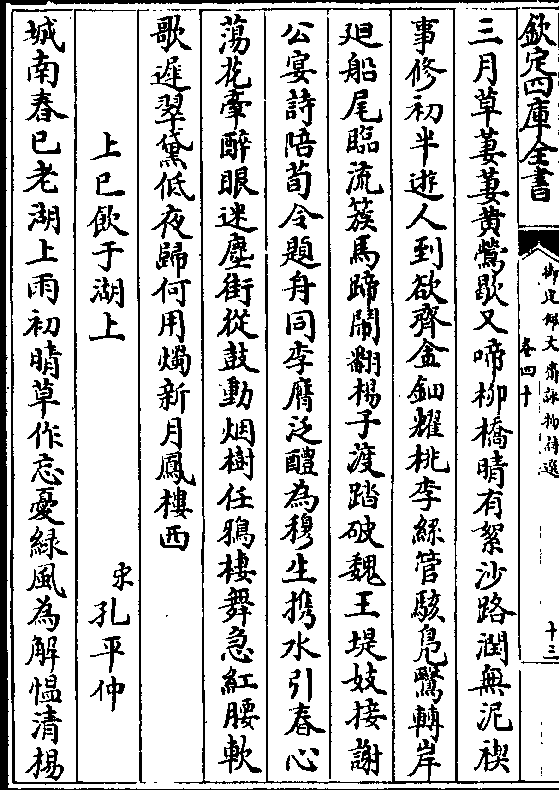 欽定四庫全書
御定佩文齋詠物詩選
卷四十
十三
三月草萋萋黄鶯歇又啼柳橋晴有絮沙路潤無泥禊
事修初半遊人到欲齊金鈿耀桃李絲管駭鳧鷖轉岸
廻船尾臨流簇馬蹄鬧翻楊子渡踏破魏王堤妓接謝
公宴詩陪荀令題舟同李膺泛醴為穆生携水引春心
蕩花牽醉眼迷塵街從鼓動烟樹任鴉棲舞急紅腰軟
歌遲翠黛低夜歸何用燭新月鳳樓西
上巳飲于湖上
宋孔平仲
城南春已老湖上雨初晴草作忘憂緑風為解愠清楊